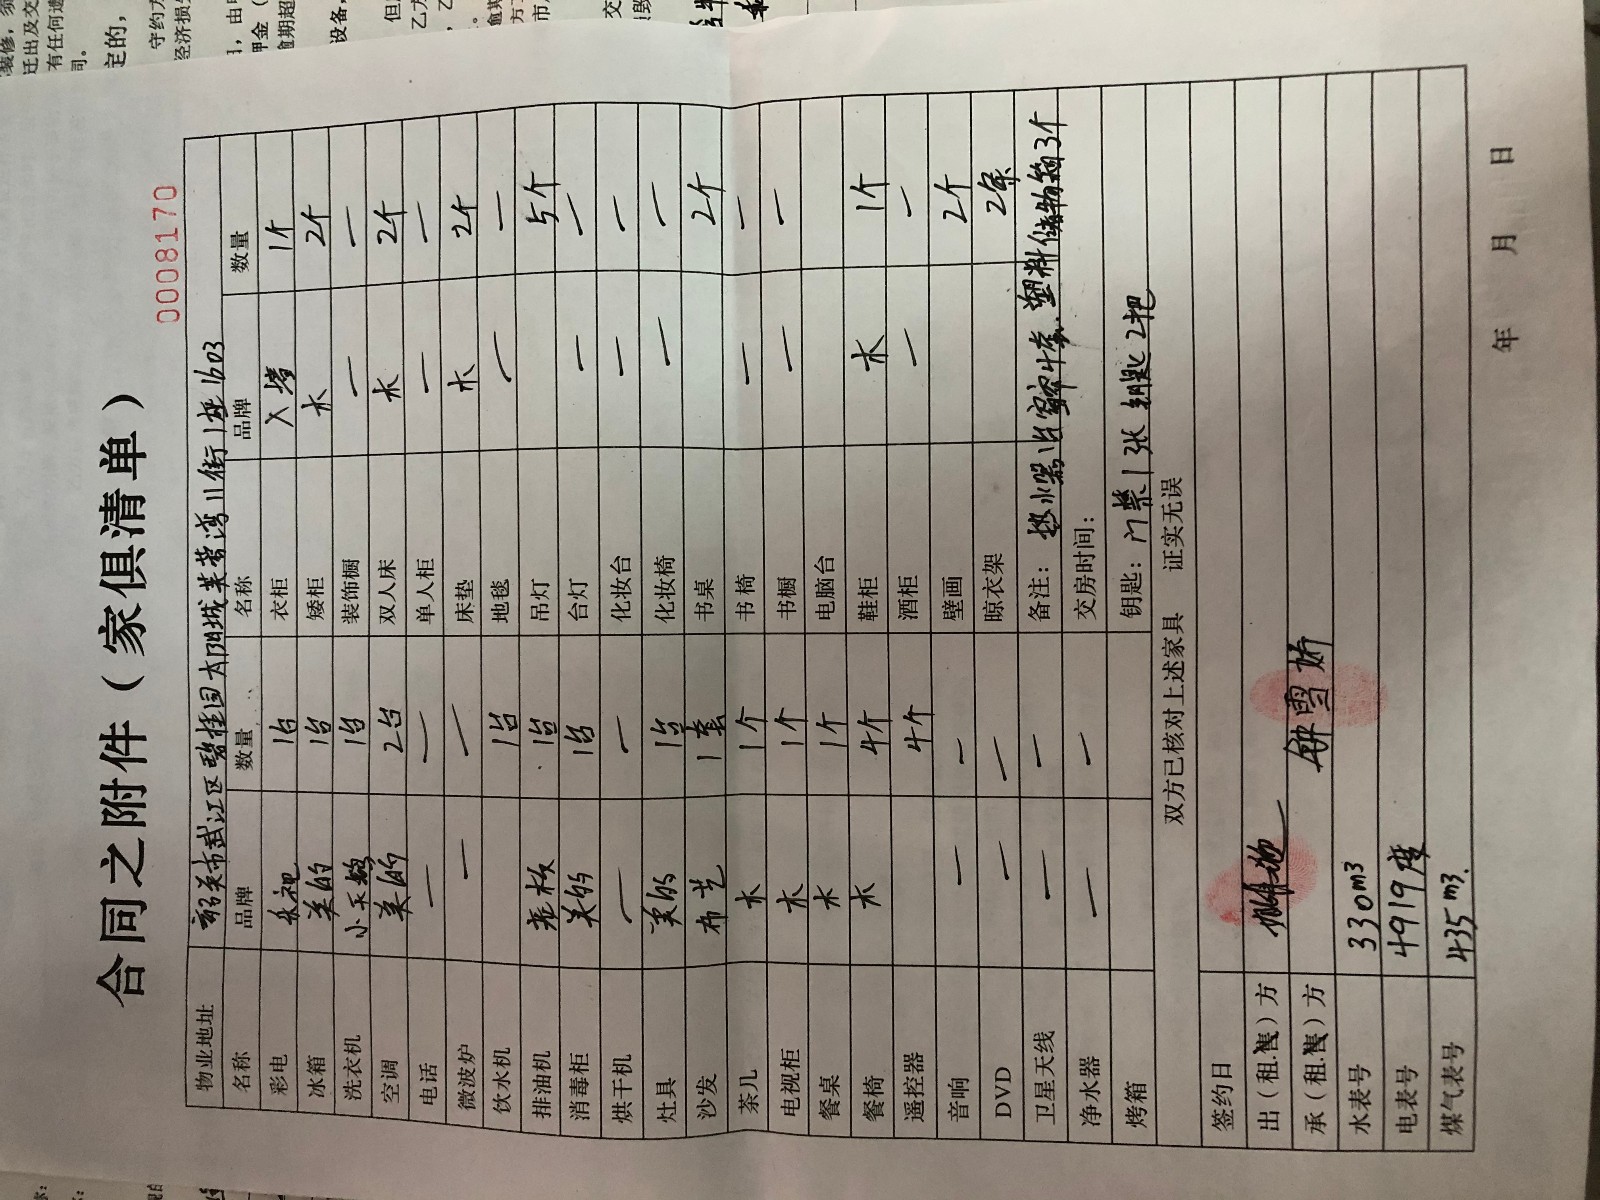 合同之附件（家俱清单）
0008170
物业地址 韶关市武江区碧桂园太阳城芙蓉湾11街1座1603
名称 品牌 数量 名称 品牌 数量
彩电 乐视 1台 衣柜 入墙 1个
冰箱 美的 1台 矮柜 木 2个
洗衣机 小天鹅 1台 装饰橱 — —
空调 美的 2台 双人床 木 2个
电话 — — 单人柜 — —
微波炉 — — 床垫 木 2个
饮水机 1台 地毯 — —
排油机 老板 1台 吊灯 5个
消毒柜 美的 1台 台灯 — —
烘干机 — — 化妆台 — —
灶具 美的 1台 化妆椅 — —
沙发 布艺 1套 书桌 2个
茶几 木 1个 书椅 — —
电视柜 木 1个 书橱 — —
餐桌 木 1个 电脑台
餐椅 木 4个 鞋柜 木 1个
遥控器 4个 酒柜 — —
音响 — — 壁画 2个
DVD — — 晾衣架 2条
卫星天线 — — 备注： 热水器1台 塑料储物箱3个
净水器 — — 交房时间：
烤箱 钥匙： 门禁1张 钥匙2把
双方已核对上述家具 证实无误
签约日
出（租.售）方
承（租.售）方 钟雪娇
水表号 330m3
电表号 4919度
煤气表号 435m3.
年 月 日